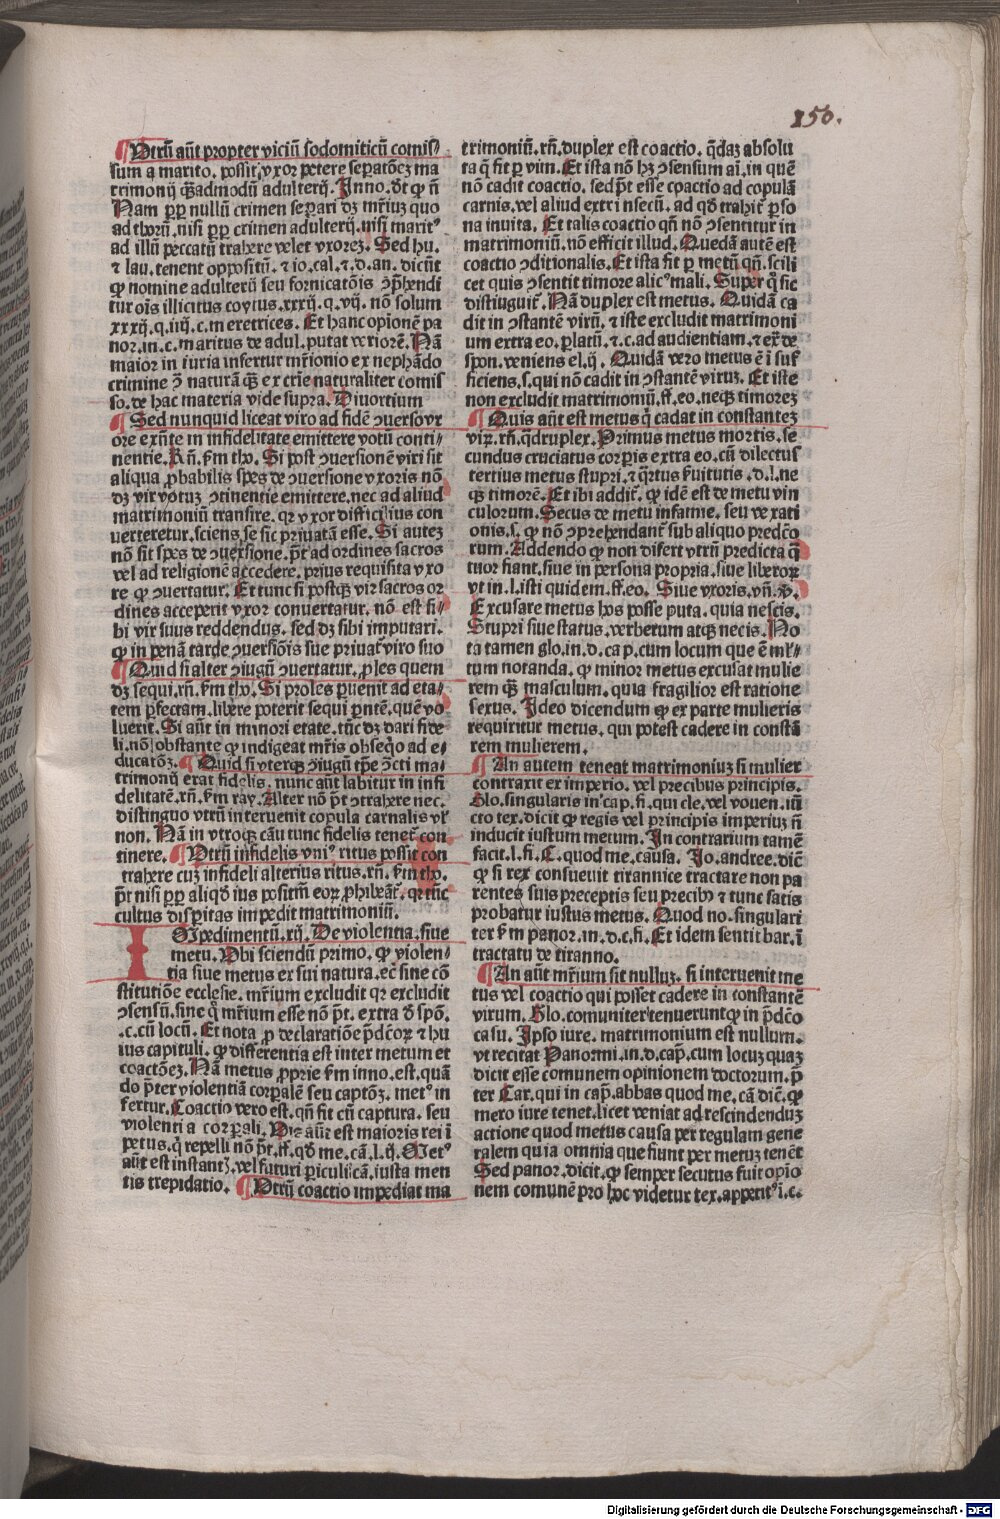 150.
¶ Utrũ aũt propter viciũ sodomiticũ comis⸗
sum a marito. possit vxor petere sepatõez ma
trimonij q̃admodũ adulterij. Inno. dt̃ q̃ ñ
Nam pp nullũ crimen separi dz mr̃iuz quo
ad thorũ. nisi pp crimen adulterij. nisi maritꝰ
ad illũ peccatũ trahere velet vxorez. Sed hu.
⁊ lau. tenent oppositũ. ⁊ io. cal. ⁊. d. an. dicũt
ꝙ nomine adulterij seu fornicatõis ↄp̃hendi
tur oĩs illicitus coytus. xxxij. q. vij. nõ solum
xxxij. q. iiij. c. meretrices. Et hanc opionẽ pa
nor. in. c. maritus de adul. putat veriorẽ. Nã
maior iniuria infertur mr̃ionio ex nephãdo
crimine ↄ̃ naturã q̃ꝫ ex cr̃ie naturaliter comis
so. de hac materia vide supra. Diuortium
¶ Sed nunquid liceat viro ad fidẽ ↄuerso vx
ore exñte in infidelitate emittere votũ conti⸗
nentie. Rñ. ẜm tho. Si post ↄuersionẽ viri sit
aliqua ꝓbabilis spes de ↄuersione vxoris nõ
dz vir votuz ↄtinentie emittere. nec ad aliud
matrimoniũ transire. qꝛ vxor difficilius con
uerteretur. sciens se sic priuatã esse. Si autez
nõ sit spes de ↄuersione. pt̃ ad ordines sacros
vel ad religionẽ accedere. prius requisita vxo
re ꝙ ↄuertatur. Et tunc si postq̃ꝫ vir sacros or
dines acceperit vxor conuertatur. nõ est si⸗
bi vir suus reddendus. sed dz sibi imputari.
ꝙ in penã tarde ↄuersiõis sue priuat̃ viro suo
¶ Quid si alter ↄiugũ ↄuertatur. ꝓles quem
dz sequi. rñ. ẜm tho. Si proles ꝑuenit ad eta⸗
tem ꝑfectam. libere poterit sequi pñtẽ. quẽ vo
luerit. Si aũt in minori etate. tũc dz dari fide
li. nõ obstante ꝙ indigeat mr̃is obseq̃o ad e⸗
ducatõz. ¶ Quid si vterqꝫ ↄiugũ tp̃e ↄ̃cti ma⸗
trimonij erat fidelis. nunc aũt labitur in infi
delitatẽ. rñ. ẜm ray. Alter nõ pt̃ ↄtrahere nec.
distinguo vtrũ interuenit copula carnalis vł
non. Nã in vtroqꝫ cãu tunc fidelis tenet̃ con
tinere. ¶ Utrũ infidelis vniꝰ ritus possit con
trahere cuz infideli alterius ritus. rñ. ẜm tho.
pt̃ nisi pp aliqd̃ ius positm̃ eoꝝ ꝓhibeãt̃. qꝛ tũc
cultus disparitas impedit matrimoniũ.
IMpedimentũ. xij. De violentia. siue
metu. Ubi sciendũ primo. ꝙ violen⸗
tia siue metus ex sui natura. ec̃ sine cõ
stitutiõe ecclesie. mr̃ium excludit qꝛ excludit
ↄsensũ. sine q̃ mr̃ium esse nõ pt̃. extra d̃ spõ.
.c. cũ locũ. Et nota ꝓ declaratiõe p̃dc̃oꝝ ⁊ hu
ius capituli. ꝙ differentia est inter metum et
coactõez. Nã metus ꝓprie ẜm inno. est. quã
do p̃ter violentiã corꝑalẽ seu captõz. metꝰ in
fertur. Coactio vero est. qñ fit cũ captura. seu
violentia corꝑali. Uis aũt est maioris rei ĩ
petus. q̃ repelli nõ pt̃. ff. qd̃ me. cã. l. ij. Metꝰ
aũt est instantꝭ. vel futuri ꝑiculi cã. iusta men
tis trepidatio. ¶ Utrũ coactio impediat ma
trimoniũ. rñ. duplex est coactio. q̃daz absolu
ta q̃ fit ꝑ vim. Et ista nõ hꝫ ↄsensum aĩ. in quẽ
nõ cadit coactio. sed pt̃ esse coactio ad copulã
carnis. vel aliud extrinsecũ. ad qd̃ trahit̃ ꝑso
na inuita. Et talis coactio qñ nõ ↄsentitur in
matrimoniũ. nõ efficit illud. Quedã autẽ est
coactio ↄditionalis. Et ista fit ꝑ metũ qñ. scili
cet quis ↄsentit timore alicꝰ mali. Super q̃ sic
distinguit̃. Nã duplex est metus. Quidã ca
dit in ↄstantẽ virũ. ⁊ iste excludit matrimoni
um extra eo. ꝑ latũ. ⁊. c. ad audientiam. ⁊ ex̃ de
spon. veniens el. ij. Quidã vero metus ẽ ĩsuf
ficiens. s. qui nõ cadit in ↄstantẽ viruz. Et iste
non excludit matrimoniũ. ff. eo. necqꝫ timorez
¶ Quis aũt est metus q̃ cadat in constantez
viꝝ. rñ. q̃druplex. Primus metus mortis. se
cundus cruciatus corꝑis extra eo. cũ dilectus
tertius metus stupri. ⁊ q̃rtus ẜuitutis. d. l. ne
qꝫ timorẽ. Et ibi addit̃. ꝙ idẽ est de metu vin
culorum. Secus de metu infamie. seu vexati
onis. s. ꝙ nõ ↄprehendant̃ sub aliquo predc̃o
rum. Addendo ꝙ non difert vtrũ predicta q̃
tuor fiant. siue in persona propria. siue liberoꝝ
vt in. l. isti quidem. ff. eo. Siue vxoris. vñ. ꝟ.
Excusare metus hos posse puta. quia nescis.
Stupri siue status. verberum atqꝫ necis. No
ta tamen glo. in. d. cap. cum locum que ẽ ml̃⸗
tum notanda. ꝙ minor metus excusat mulie
rem q̃ꝫ masculum. quia fragilior est ratione
sexus. Ideo dicendum ꝙ ex parte mulieris
requiritur metus. qui potest cadere in constã
tem mulierem.
¶ An autem teneat matrimoniuz si mulier
contraxit ex imperio. vel precibus principis.
Glo. singularis in cap. fi. qui cle. vel vouen. iũ
cto tex. dicit ꝙ regis vel principis imperiuz ñ
inducit iustum metum. In contrarium tamẽ
facit. l. fi. C. quod me. causa. Jo. andree. dic̃
ꝙ si rex consueuit tirannice tractare non pa
rentes suis preceptis seu precibꝰ ⁊ tunc satis
probatur iustus metus. Quod no. singulari
ter ẜm panor. in. d. c. fi. Et idem sentit bar. ĩ
tractatu de tiranno.
¶ An aũt mr̃ium sit nulluz. si interuenit me
tus vel coactio qui posset cadere in constantẽ
virum. Glo. comuniter tenuerunt ꝙ in p̃dc̃o
casu. Ipso iure. matrimonium est nullum.
vt recitat Panormi. in. d. cap̃. cum locuz quaz
dicit esse comunem opinionem doctorum. p̃
ter Car. qui in cap̃. abbas quod me. cã dic̃. ꝙ
mero iure tenet. licet veniat ad rescindenduz
actione quod metus causa per regulam gene
ralem quia omnia que fiunt per metuz tenẽt
Sed panor. dicit. ꝙ semper secutus fuit opĩo
nem comunẽ pro hoc videtur tex. apperitꝰ ĩ. c.
Digitalisierung gefördert durch die Deutsche Forschungsgemeinschaft - DFG